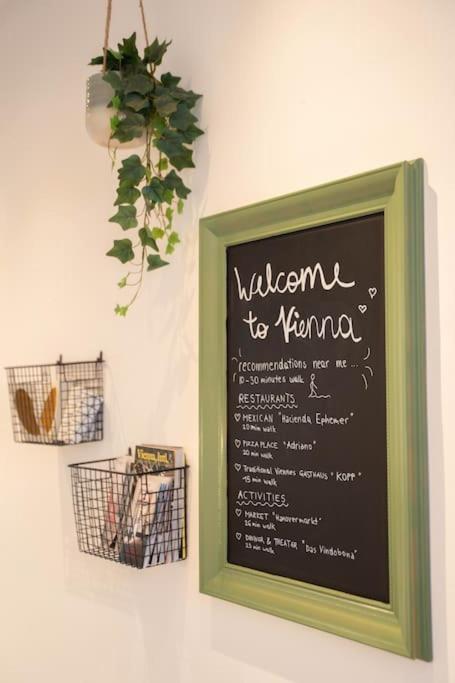 Welcome
to Vienna
recommendations near me ...
10-30 minutes walk
RESTAURANTS
MEXICAN "Hacienda Ephemer"
20 min walk
PIZZA PLACE "Adriano"
20 min walk
Traditional Viennes GASTHAUS "KOPP"
15 min walk
ACTIVITIES
MARKET "Hanovermarkt"
26 min walk
DINNER & THEATER "Das Vindobona"
23 min walk
Vienna,